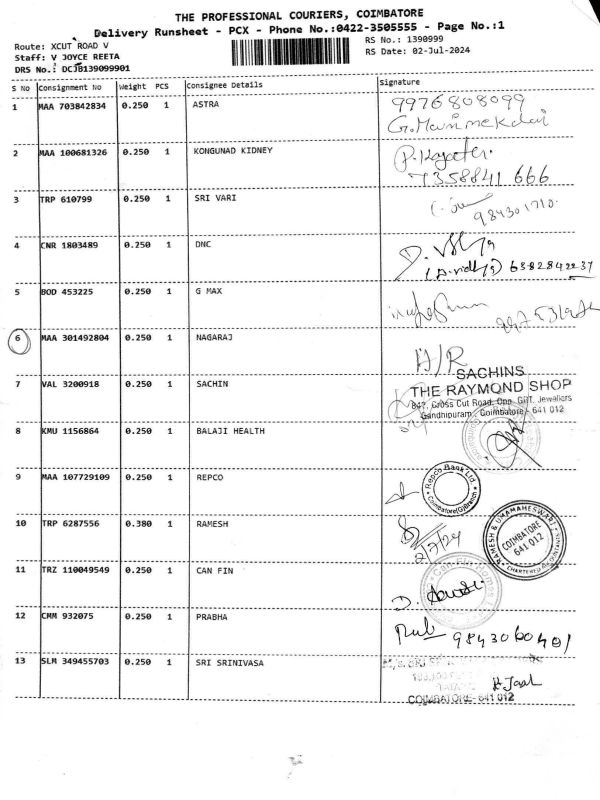 THE PROFESSIONAL COURIERS, COIMBATORE
Delivery Runsheet - PCX - Phone No.:0422-3505555 - Page No.:1
Route: XCUT ROAD V
RS No.: 1390999
Staff: V JOYCE REETA
RS Date: 02-Jul-2024
DRS No.: DCJB139099901
S No Consignment No Weight PCS Consignee Details Signature
1 MAA 703842834 0.250 1 ASTRA 9976808099
2 MAA 100681326 0.250 1 KONGUNAD KIDNEY
7358841 666
3 TRP 610799 0.250 1 SRI VARI
4 CNR 1803489 0.250 1 DNC
6382842237
5 BOD 453225 0.250 1 G MAX
6 MAA 301492804 0.250 1 NAGARAJ H/R
SACHINS
7 VAL 3200918 0.250 1 SACHIN THE RAYMOND SHOP
847, Cross Cut Road, Opp. GRT. Jewellers
Gandhipuram, Coimbatore - 641 012
8 KMU 1156864 0.250 1 BALAJI HEALTH
9 MAA 107729109 0.250 1 REPCO Repco Bank Ltd.
Coimbatore(G)Branch
10 TRP 6287556 0.380 1 RAMESH RAMESH & UMAMAHESWARI
COIMBATORE
641 012
CHARTERED ACCOUNTANTS
2/7/24
11 TRZ 110049549 0.250 1 CAN FIN Can Fin Homes
D.
12 CMM 932075 0.250 1 PRABHA 9843060401
13 SLM 349455703 0.250 1 SRI SRINIVASA
COIMBATORE-641 012